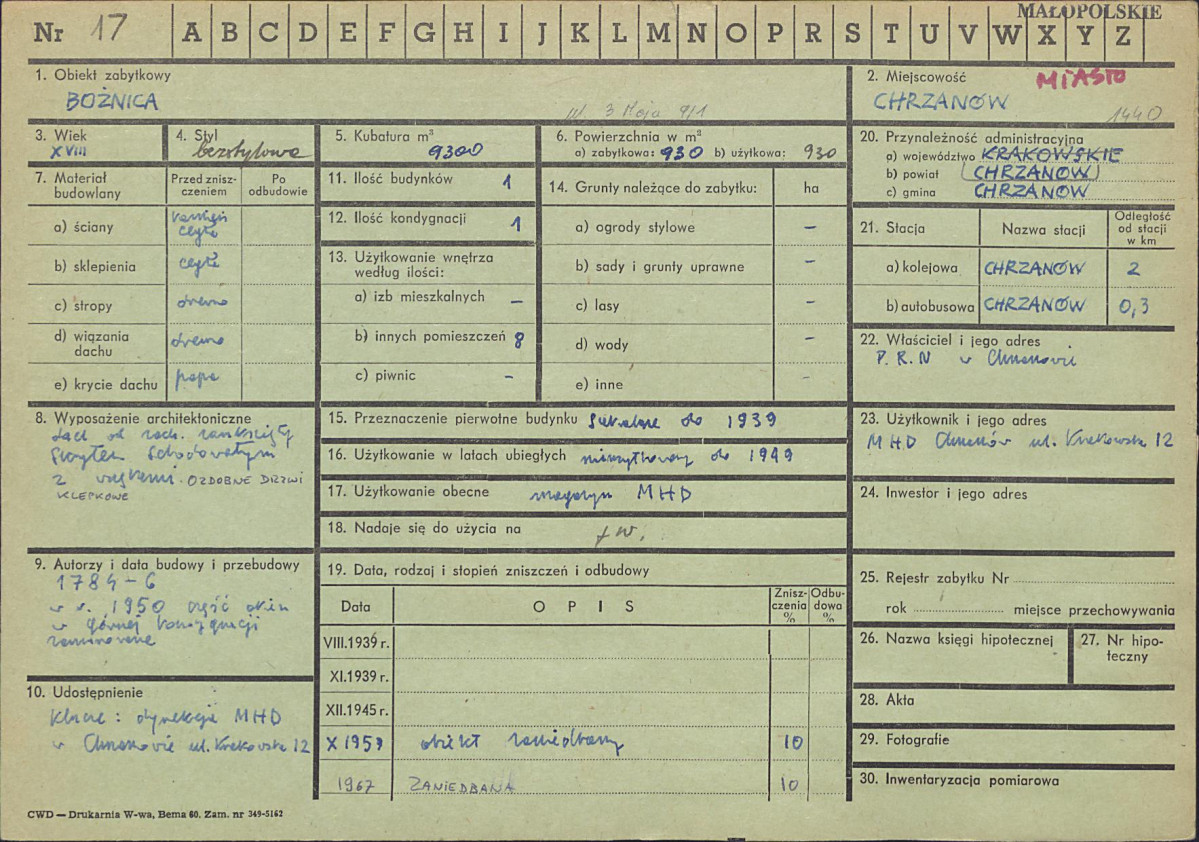 MAŁOPOLSKIE
Nr 17 A B C D E F G H I J K L M N O P R S T U V W X Y Z
1. Obiekt zabytkowy
BOŻNICA
ul. 3 Maja 9/1
2. Miejscowość
MIASTO
CHRZANÓW
1440
3. Wiek
XVIII
4. Styl
bezstylowa
5. Kubatura m³
9300
6. Powierzchnia w m²
a) zabytkowa: 930 b) użytkowa: 930
20. Przynależność administracyjna
a) województwo KRAKOWSKIE
b) powiat (CHRZANÓW)
c) gmina CHRZANÓW
7. Materiał budowlany
Przed zniszczeniem
Po odbudowie
a) ściany
kamień
cegła
b) sklepienia cegła
c) stropy drewno
d) wiązania dachu drewno
e) krycie dachu papa
11. Ilość budynków 1
12. Ilość kondygnacji 1
13. Użytkowanie wnętrza
według ilości:
a) izb mieszkalnych –
b) innych pomieszczeń 8
c) piwnic –
14. Grunty należące do zabytku: ha
a) ogrody stylowe –
b) sady i grunty uprawne –
c) lasy –
d) wody –
e) inne -
21. Stacja
Nazwa stacji
Odległość
od stacji
w km
a) kolejowa CHRZANÓW 2
b) autobusowa CHRZANÓW 0,3
22. Właściciel i jego adres
P.R.N w Chrzanowie
8. Wyposażenie architektoniczne
dach od zach. zamknięty
szczytem schodowatym
z OZDOBNE DRZWI
KLEPKOWE
15. Przeznaczenie pierwotne budynku sakralne do 1939
16. Użytkowanie w latach ubiegłych nieużytkowany do 1949
17. Użytkowanie obecne magazyn MHD
18. Nadaje się do użycia na j.w.
23. Użytkownik i jego adres
MHD Chrzanów ul. Krakowska 12
24. Inwestor i jego adres
9. Autorzy i data budowy i przebudowy
1784-6
w r. 1950 część okien
w górnej kondygnacji
zamurowane
19. Data, rodzaj i stopień zniszczeń i odbudowy
Data
OPIS
Zniszczenia %
Odbudowa %
VIII.1939 r.
XI.1939 r.
XII.1945 r.
X 1959 obiekt zaniedbany 10
1967 ZANIEDBANA 10
25. Rejestr zabytku Nr
rok miejsce przechowywania
26. Nazwa księgi hipotecznej
27. Nr hipoteczny
28. Akta
29. Fotografie
30. Inwentaryzacja pomiarowa
10. Udostępnienie
Klucze: dyrekcja MHD
w Chrzanowie ul. Krakowska 12
CWD — Drukarnia W-wa, Bema 60. Zam. nr 349-5162